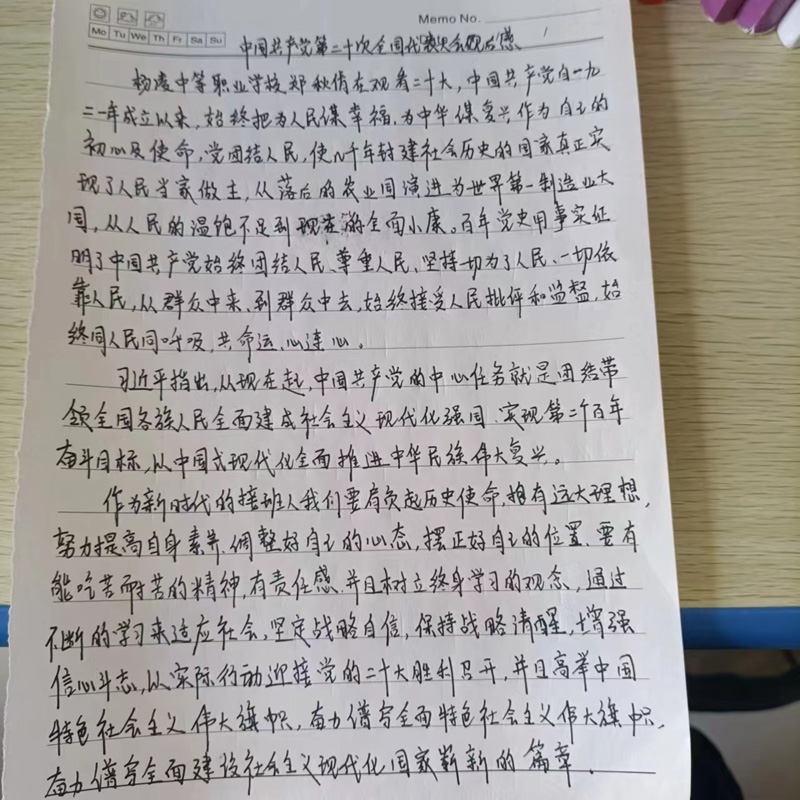 Memo No.
Mo Tu We Th Fr Sa Su
中国共产党第二十次全国代表大会观后感
杨凌中等职业学校郑秋倩在观看二十大,中国共产党自一九
二一年成立以来,始终把为人民谋幸福、为中华谋复兴作为自己的
初心及使命,党团结人民,使几千年封建社会历史的国家真正实
现了人民当家做主,从落后的农业国演进为世界第一制造业大
国,从人民的温饱不足到现在的全面小康。百年党史用事实征
明了中国共产党始终团结人民、尊重人民、坚持一切为了人民、一切依
靠人民,从群众中来、到群众中去,始终接受人民批评和监督,始
终同人民同呼吸、共命运、心连心。
习近平指出,从现在起,中国共产党的中心任务就是团结带
领全国各族人民全面建成社会主义现代化强国、实现第二个百年
奋斗目标,从中国式现代化全面推进中华民族伟大复兴。
作为新时代的接班人我们要肩负起历史使命,拥有远大理想,
努力提高自身素养,调整好自己的心态,摆正好自己的位置、要有
能吃苦耐苦的精神,有责任感、并且树立终身学习的观念,通过
不断的学习来适应社会,坚定战略自信,保持战略清醒,增强
信心斗志,以实际行动迎接党的二十大胜利召开,并且高举中国
特色社会主义伟大旗帜,奋力谱写全面特色社会主义伟大旗帜,
奋力谱写全面建设社会主义现代化国家崭新的篇章.